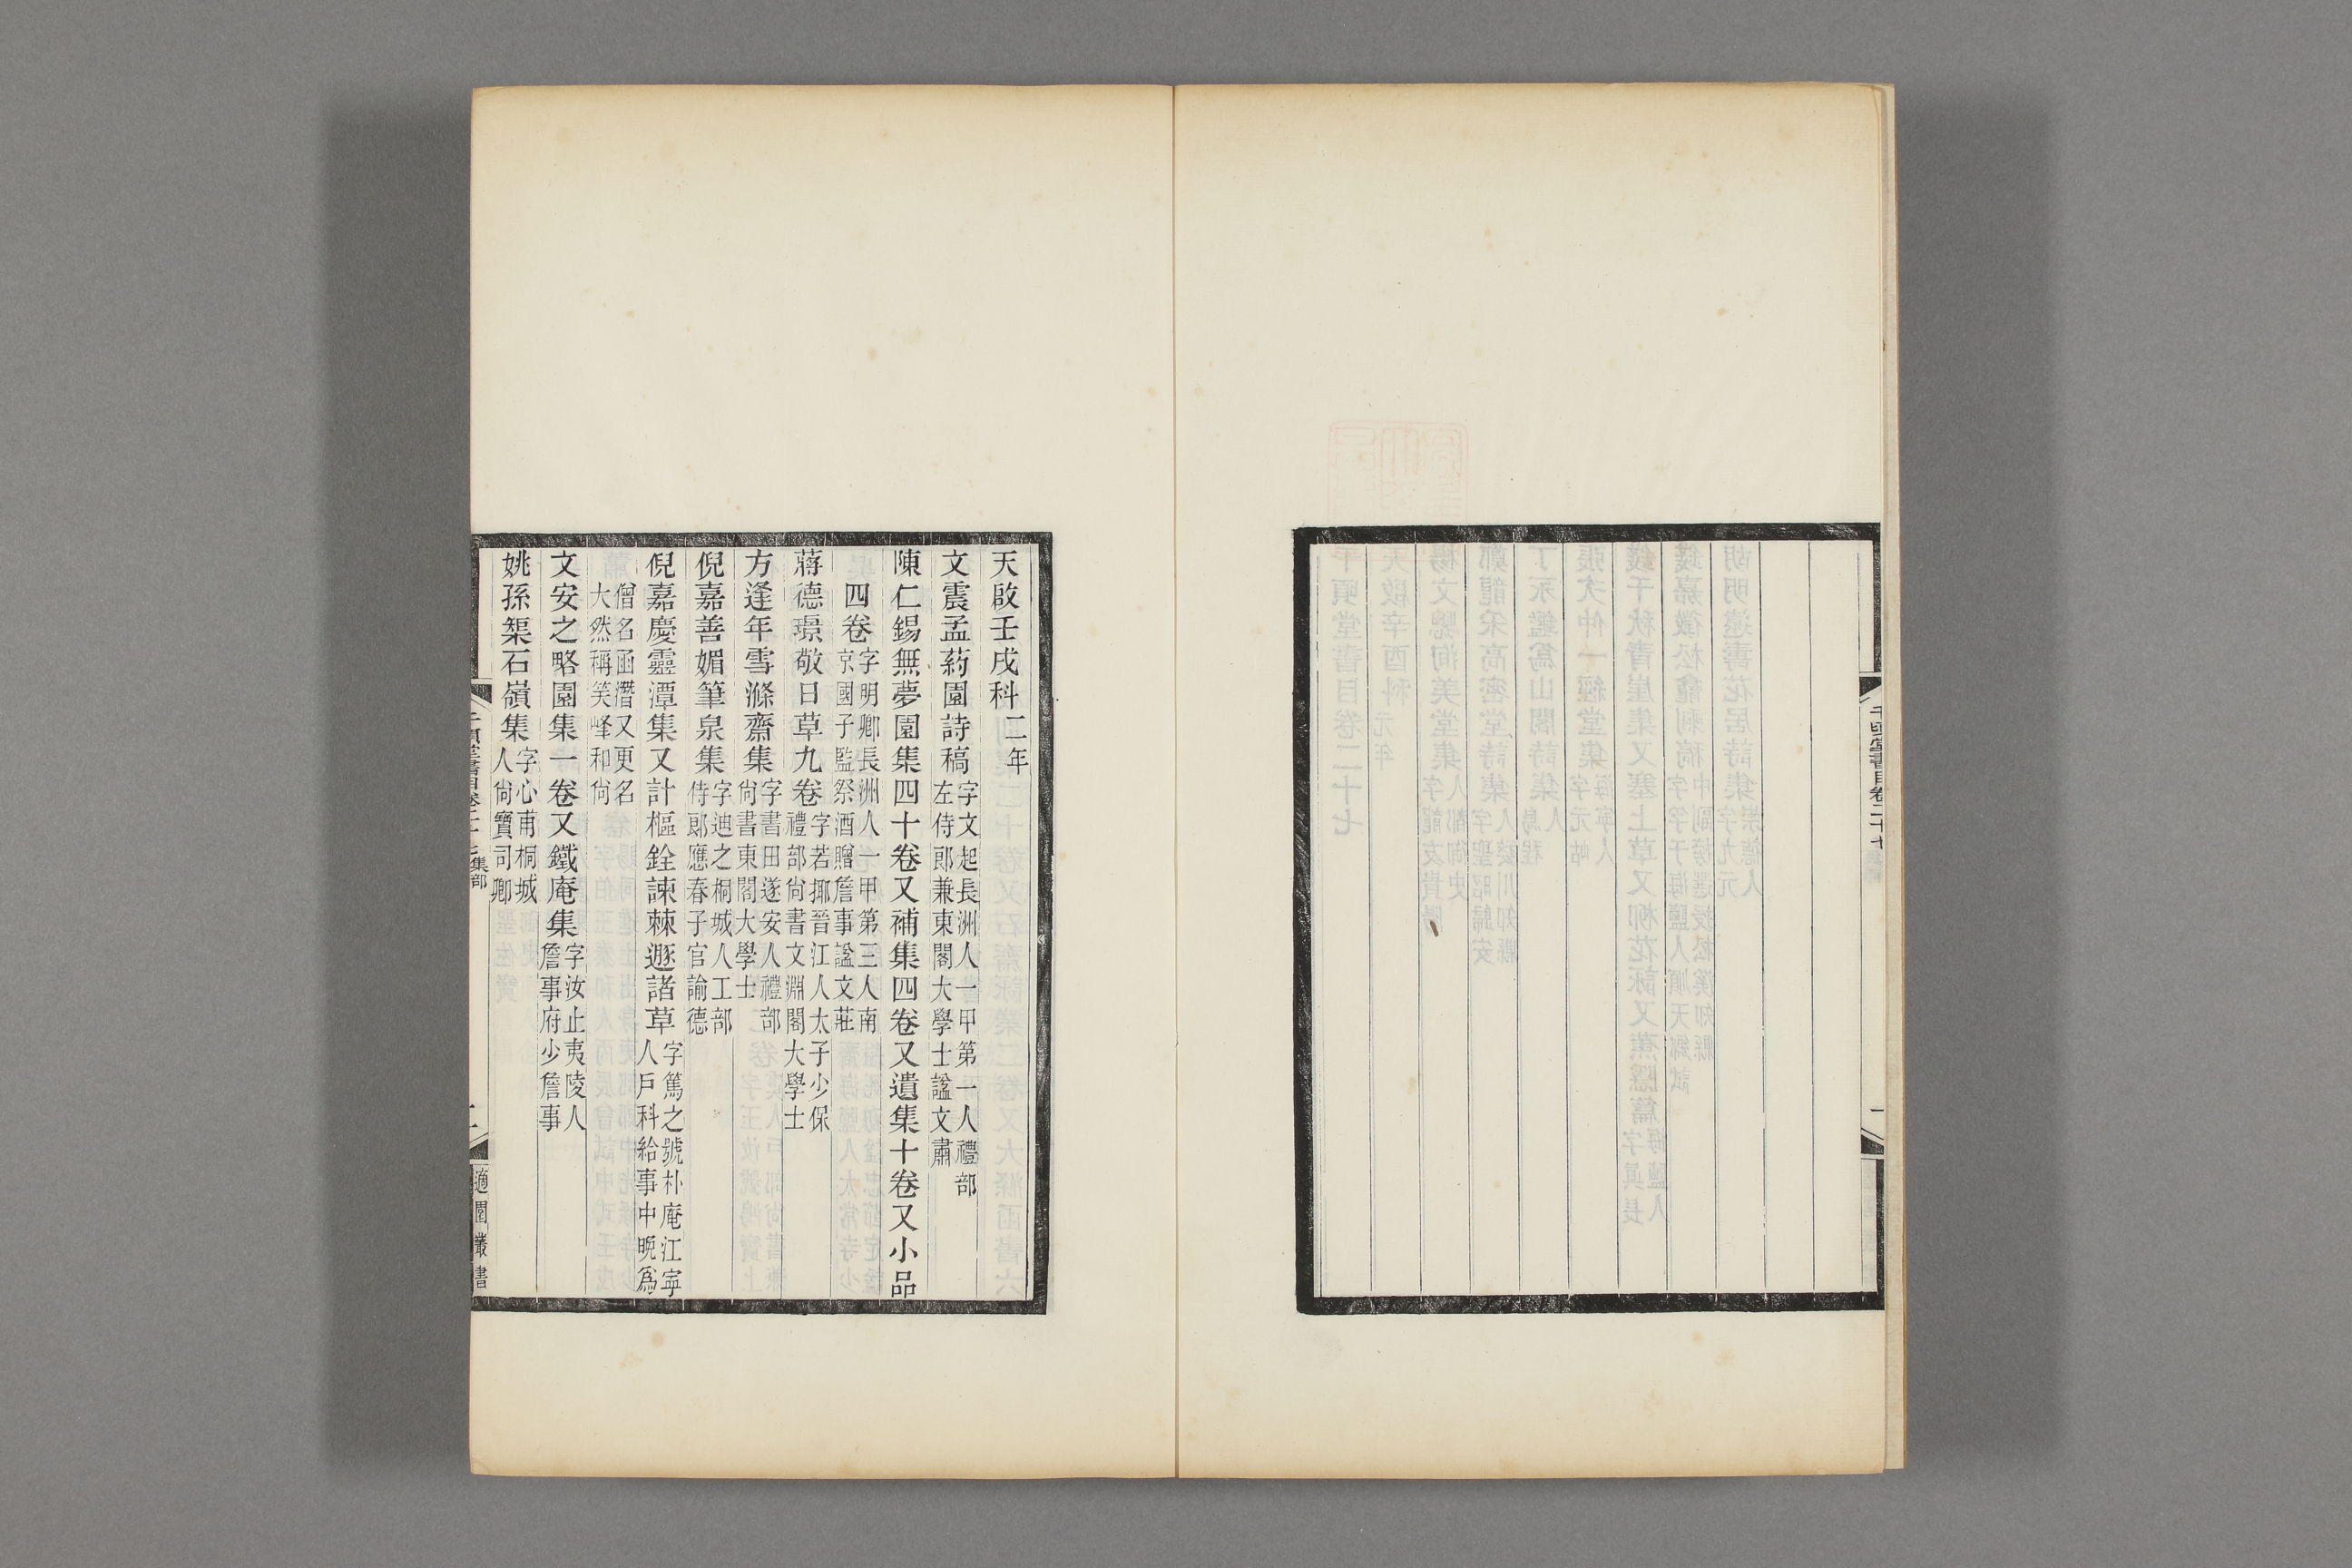 千頃堂書目卷二十七
一
天啟壬戌科二年
文震孟葯園詩稿字文起長洲人一甲第一人禮部左侍郎兼東閣大學士諡文肅
陳仁錫無夢園集四十卷又補集四卷又遺集十卷又小品
四卷字明卿長洲人一甲第三人南京國子監祭酒贈詹事諡文莊
蔣德璟敬日草九卷字若揶晉江人太子少保禮部尚書文淵閣大學士
方逢年雪滌齋集字書田遂安人禮部尚書東閣大學士
倪嘉善媚筆泉集字迪之桐城人工部侍郎應春子官諭德
倪嘉慶靈潭集又計樞銓諫棘遯諸草字篤之號朴庵江寧人戶科給事中晚爲
僧名函潛又更名大然稱笑峰和尚
文安之略園集一卷又鐵庵集字汝止夷陵人詹事府少詹事
姚孫榘石嶺集字心甫桐城人尚寶司卿
千頃堂書目卷二十七 集部
二
適園叢書